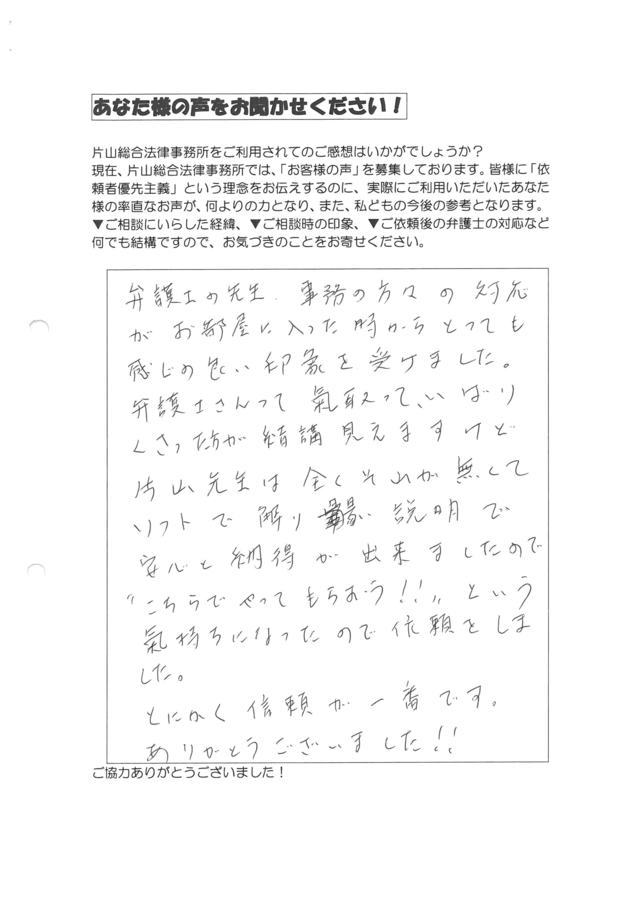 あなた様の声をお聞かせください！
片山総合法律事務所をご利用されてのご感想はいかがでしょうか？
現在、片山総合法律事務所では、「お客様の声」を募集しております。皆様に「依
頼者優先主義」という理念をお伝えするのに、実際にご利用いただいたあなた
様の率直なお声が、何よりの力となり、また、私どもの今後の参考となります。
▼ご相談にいらした経緯、▼ご相談時の印象、▼ご依頼後の弁護士の対応など
何でも結構ですので、お気づきのことをお寄せください。
弁護士の先生、事務の方々の対応
がお部屋に入った時からとっても
感じの良い印象を受けました。
弁護士さんって氣取って、いばり
くさった方が結構見えますけど
片山先生は全くそれが無くて
ソフトで解り易い説明で
安心と納得が出来ましたので
"こちらでやってもらおう!!"という
氣持ちになったので依頼をしま
した。
とにかく信頼が一番です。
ありがとうございました!!
ご協力ありがとうございました！